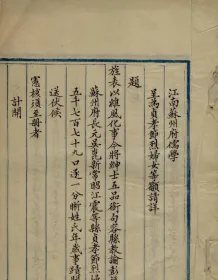 江南蘇州府儒學
呈為貞孝節烈婦女等籲請詳
題
旌表以維風化事今將紳士五品銜句容縣教諭彭
蘇州府長元吳崑新常昭江震等縣貞孝節烈
五千七百七十九口逐一分晰姓氏年歲事蹟
送伏候
憲核須至冊者
計開